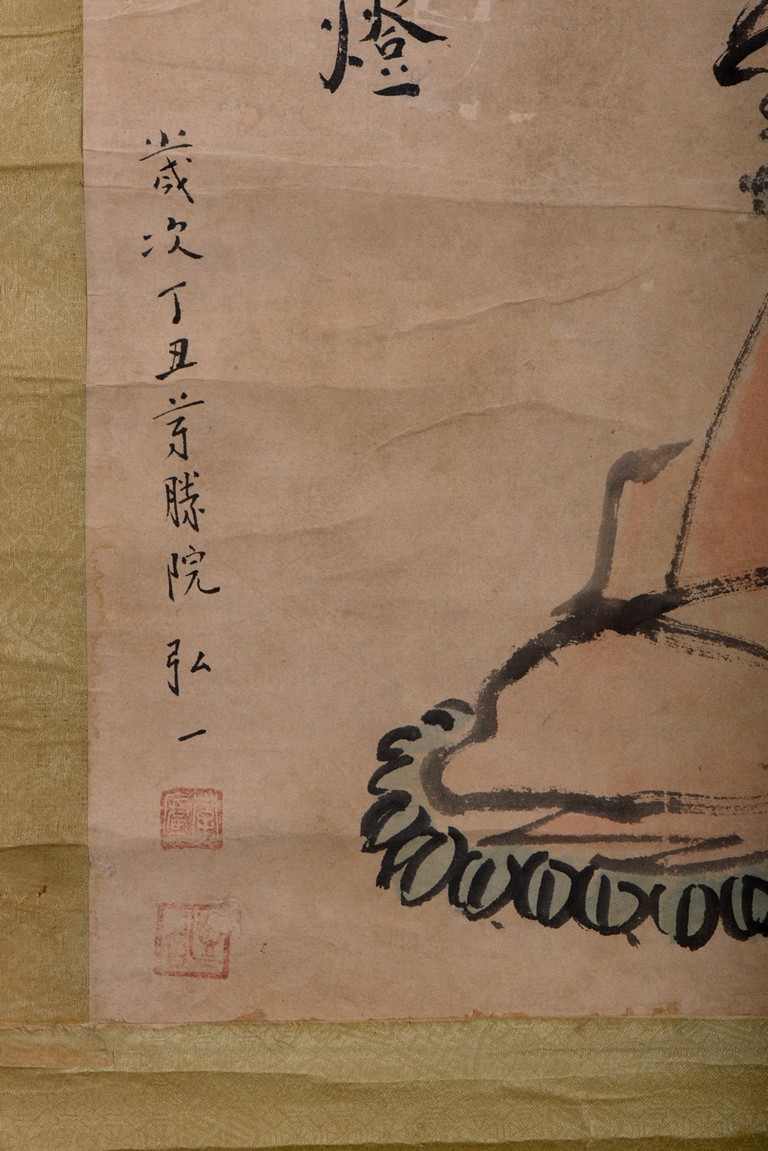 燈
歲次丁丑尊勝院弘一